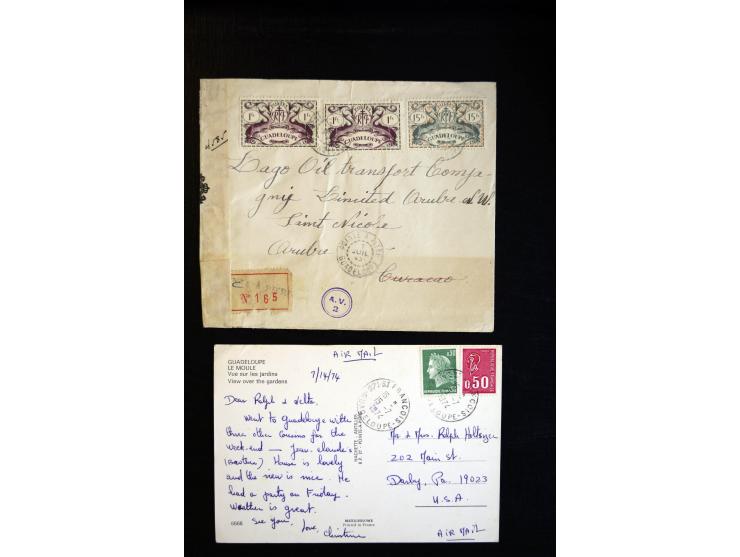 1F
GUADELOUPE
1F
GUADELOUPE
15F
GUADELOUPE
Lago Oil transport Compa-
gnie Limited Aruba N.W.
Sint Nicole
Aruba
Curacao
POINTE A PITRE
JUIL
GUADELOUPE
Nº 165
A.V.
2
GUADELOUPE
LE MOULE
Vue sur les jardins
View over the gardens
AIR MAIL
7/14/74
Dear Ralph &
Went to Guadeloupe with
three other cousins for the
week-end — Jean-Claude's
House is lovely
and the view is nice. He
had a party on Friday.
Weather is great.
See you,
Love,
Christine
6568
MEXICHROME
Printed in France
0,30
0,50
ST FRANCOIS
GUADELOUPE
Mr. & Mrs. Ralph Holtsizer
202 Main St.
Darby, Pa. 19023
U.S.A.
AIR MAIL